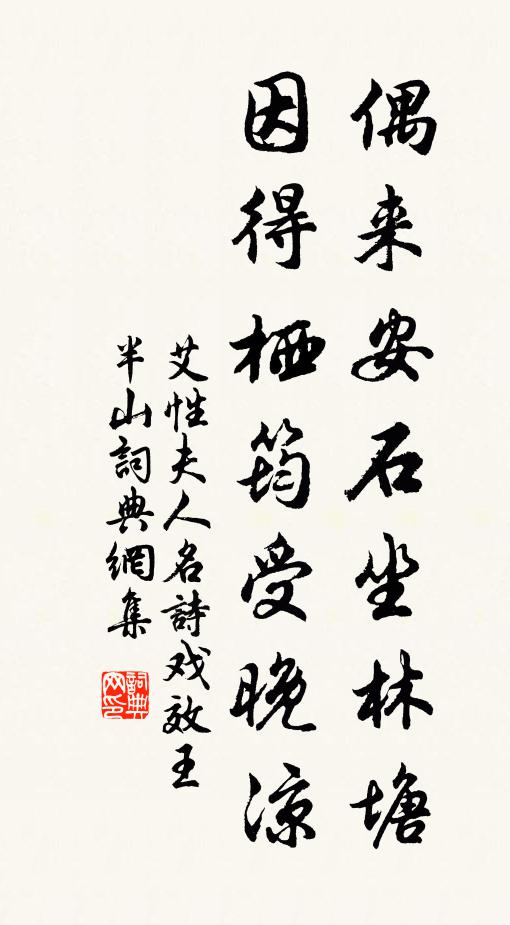 偶来安石坐林塘
因得栖筠受晚凉
艾性夫人名詩戏效王
半山詞典網集
詞典
网印